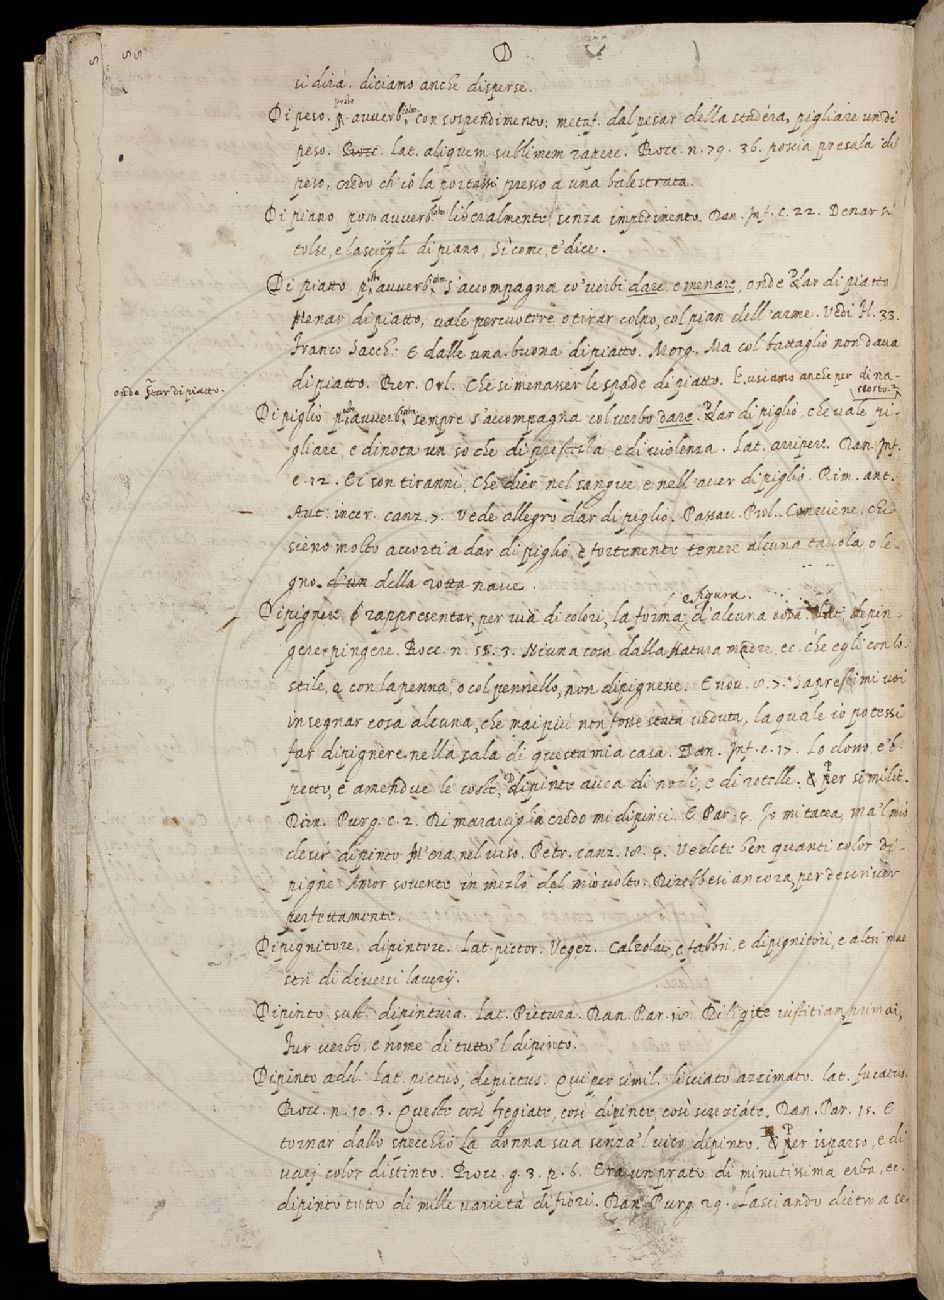 D
si dirà. diciamo anche disperse.
Di peso. posto avverb.alm. con sospendimento: metaf. dal pesar della stadéra, pigliare un di
peso. Bocc. Lat. aliquem sublimem rapere. Bocc. n. 79. 36. poscia presala di
peso, credo ch'io la portassi presso a una balestrata.
Di piano posto avverb.alm. liberalmente, senza impedimento. Dan. Inf. c. 22. Denar si
tolse, e lasciogli di piano, Sì come, e' dice.
Di piatto posto avverb.alm. s'accompagna co' verbi dare, e menare, onde Dar di piatto
Menar di piatto, vale percuotere, o tirar colpo, col pian dell'arme. Vedi Fl. 33.
Franco Sacch. E dalle una buona di piatto. Morg. Ma col battaglio non dava
di piatto. Ber. Orl. Che si menasser le spade di piatto. E usiamo anche per di na-
scosto.
onde star di piatto.
Di piglio posto avverb.alm. sempre s'accompagna col verbo dare. Dar di piglio, che vale pi-
gliare, e dinota un so che di prestezza e di violenza. Lat. arripere. Dan. Inf.
c. 12. Ei son tiranni, Che dier nel sangue e nell'aver di piglio. Rim. ant.
Aut. incer. canz. 7. Vede allegro dar di piglio. Passav. Prol. Conviene, che
sieno molto accorti a dar di piglio, e fortemente tenere alcuna tavola o le-
gno d'un della rotta nave.
e figura.
Dipignere rappresentar, per via di colori, la forma, d'alcuna cosa. Lat. depin-
gere, pingere. Bocc. n. 55. 3. Niuna cosa dalla Natura madre, ec. che egli con lo
stile, e con la penna, o col pennello, non dipignesse. E nov. 8. 7. Saprestimi voi
insegnar cosa alcuna, che mai più non fosse stata veduta, la quale io potessi
far dipignere nella sala di questa mia casa. Dan. Inf. c. 17. Lo dosso, e'l
petto, e amendue le coste, Dipinte avea di nodi, e di rotelle. Per similit.
Dan. Purg. c. 2. Di maraviglia credo mi dipinsi. E Par. 4. Io mi tacea, ma'l mio
desir dipinto M'era nel viso. Petr. canz. 18. 4. Vedete ben quanti color di-
pigne Amor sovente in mezzo del mio volto. Direbbesi ancora, per descriver
perfettamente.
Dipignitore, dipintore. Lat. pictor. Vegez. Calzolai, e fabbri, e dipignitori, e altri mae
stri di diversi lavorij.
Dipinto sust. dipintura. Lat. Pictura. Dan. Par. 18. Diligite iustitiam, primai,
Fur verbo, e nome di tutto'l dipinto.
Dipinto add. Lat. pictus, depictus. Qui per simil. lisciato azzimato. lat. fucatus.
Bocc. n. 10. 3. Queste così fregiate, così dipinte, così screziate. Dan. Par. 15. E
tornar dallo specchio La donna sua senza'l viso dipinto. Per isparso, e di
varj color distinto. Bocc. g. 3. p. 6. Era un prato di minutissima erba, ec.
dipinto tutto di mille varietà di fiori. Dan. Purg. 29. Lasciando dietro a se